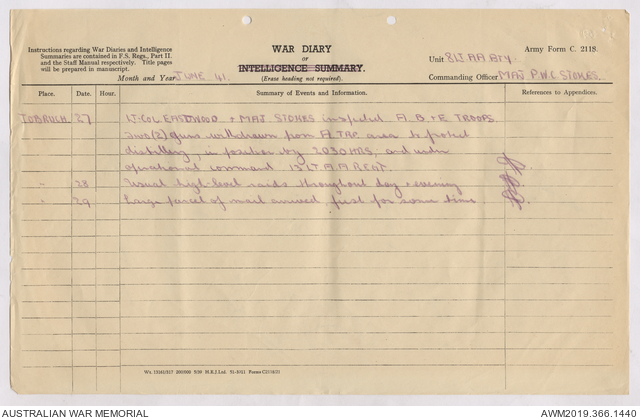 Instructions regarding War Diaries and Intelligence
Summaries are contained in F.S. Regs., Part II.
and the Staff Manual respectively. Title pages
will be prepared in manuscript.
Month and Year JUNE 41.
WAR DIARY
OR
INTELLIGENCE SUMMARY.
(Erase heading not required).
Army Form C. 2118.
Unit 8 Lt AA Bty
Commanding Officer MAJ P.W.C. STOKES.
Place. Date. Hour. Summary of Events and Information. References to Appendices.
TOBRUCH. 27 Lt-COL EASTWOOD + MAJ STOKES inspected A. B. + E TROOPS.
Two(2) guns withdrawn from A. TRP area to protect
distillery, in position by 2030 HRS, and under
operational command 13 Lt. A.A REGT.
" 28 Usual high-level raids throughout day + evening
" 29 Large parcel of mail arrived, first for some time
AUSTRALIAN WAR MEMORIAL
AWM2019.366.1440